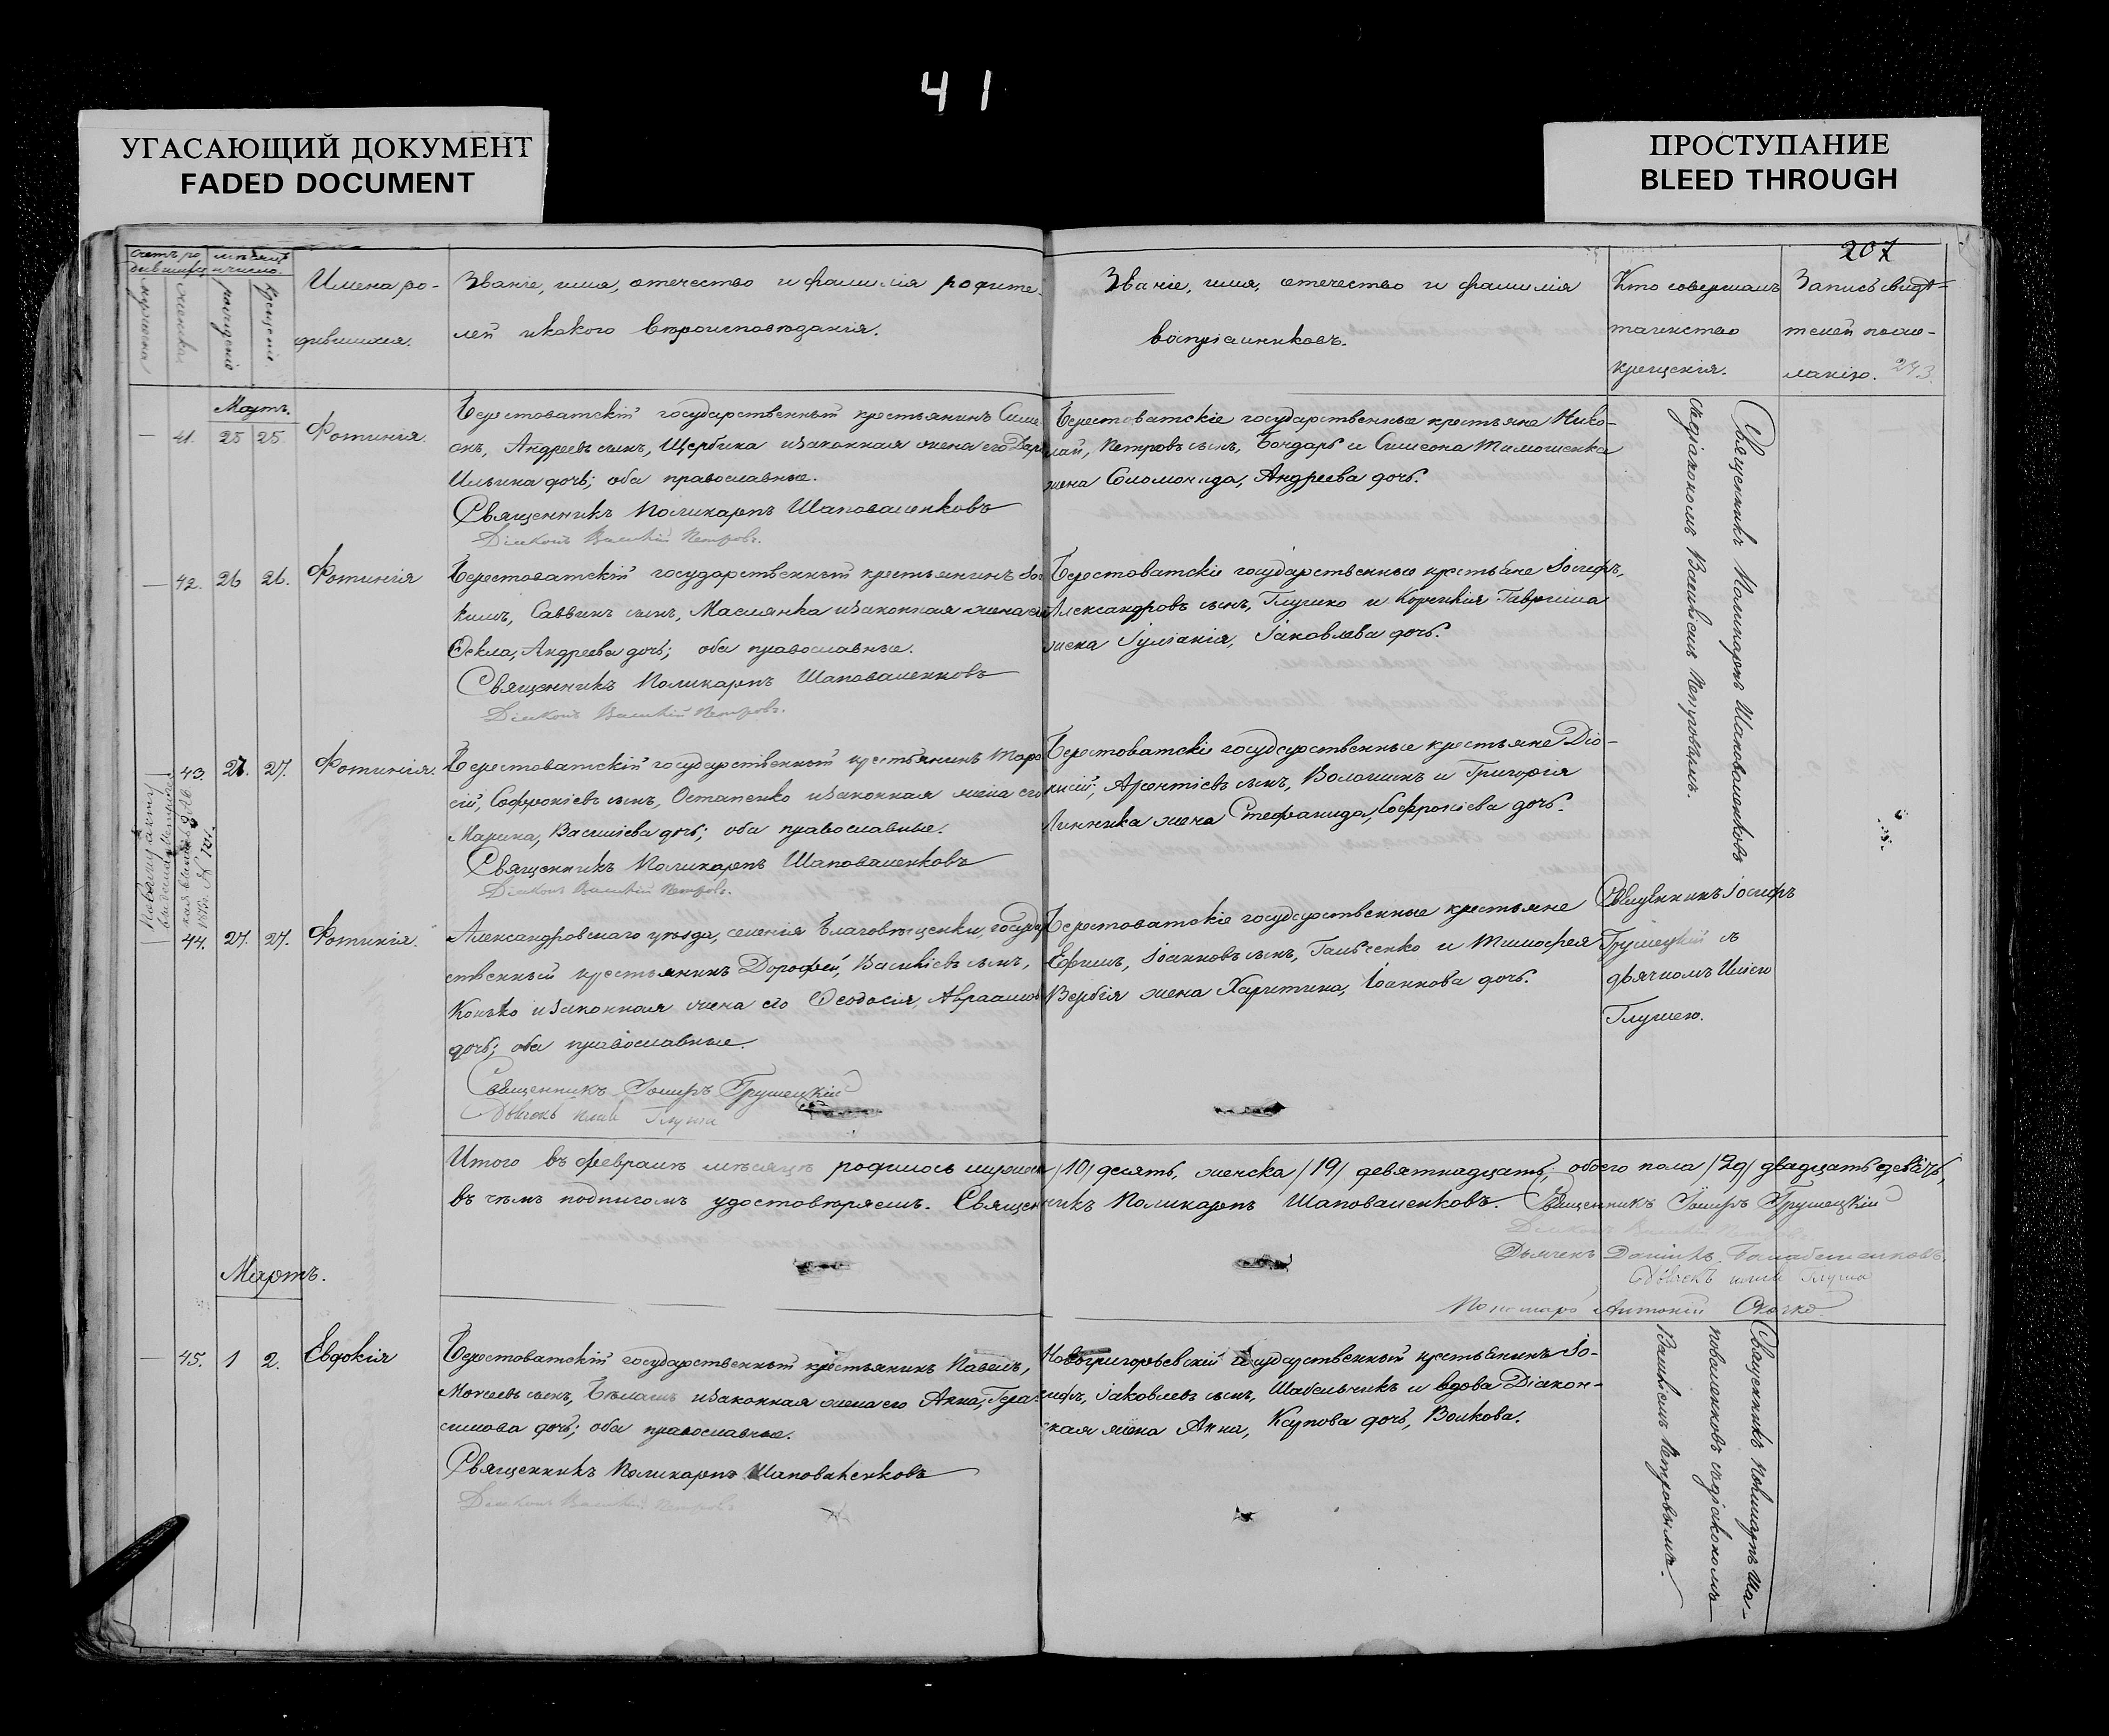 41
УГАСАЮЩИЙ ДОКУМЕНТ
FADED DOCUMENT
ПРОСТУПАНИЕ
BLEED THROUGH
207
Счетъ ро-
дившихся
мѣсяцъ
и число.
мужеска
женска
рожденія
крещенія
Имена ро-
дившихся.
Званіе, имя, отечество и фамилія родите-
лей и какого вѣроисповѣданія.
Званіе, имя, отечество и фамилія
воспріемниковъ.
Кто совершалъ
таинство
крещенія.
Запись свидѣ-
телей по же-
ланію. 243.
Мартъ.
— 41. 25 25. Фотинія.
Берестоватскій государственный крестьянинъ Симе
онъ, Андреевъ сынъ, Щербина и законная жена его Дарь
Ильина дочь; оба православные.
Священникъ Поликарпъ Шаповаленковъ
Діаконъ Василій Петровъ.
Берестоватскіе государственные крестьяне Нико-
лай, Петровъ сынъ, Бондарь и Симеона Тимошенка
жена Соломонида, Андреева дочь.
Священникъ Поликарпъ Шаповаленковъ
съ діакономъ Василіемъ Петровымъ.
— 42. 26 26. Фотинія
Берестоватскій государственный крестьянинъ Іоа
кимъ, Саввинъ сынъ, Маслянка и законная жена его
Ѳекла, Андреева дочь; оба православные.
Священникъ Поликарпъ Шаповаленковъ
Діаконъ Василій Петровъ.
Берестоватскіе государственные крестьяне Іосифъ,
Александровъ сынъ, Глушко и Корнилія Гавриша
жена Іуліанія, Іаковлева дочь.
43. 27. 27. Фотинія.
Берестоватскій государственный крестьянинъ Тара
сій, Софроніевъ сынъ, Остапенко и законная жена его
Марина, Василіева дочь; оба православные.
Священникъ Поликарпъ Шаповаленковъ
Діаконъ Василій Петровъ.
Берестоватскіе государственные крестьяне Діо-
нисій, Арсентіевъ сынъ, Волошинъ и Григорія
Линника жена Стефанида, Софроніева дочь.
По сему акту
№ 121.
44. 27. 27. Фотинія.
Александровскаго уѣзда, селенія Благовѣщенки, государ
ственный крестьянинъ Дорофей, Василіевъ сынъ,
Конько и законная жена его Ѳеодосія, Авраамов
дочь; оба православные.
Священникъ Іосифъ Грушецкій
Дьячекъ Илія Глуша
Берестоватскіе государственные крестьяне
Ефимъ, Іоанновъ сынъ, Гальченко и Тимофея
Вербія жена Харитина, Іоаннова дочь.
Священникъ Іосифъ
Грушецкій съ
дьячкомъ Иліею
Глушею.
Итого въ февралѣ мѣсяцѣ родилось мужеска /10/ десять, женска /19/ девятнадцать, обоего пола /29/ двадцать девять,
въ чемъ подписомъ удостовѣряемъ. Священникъ Поликарпъ Шаповаленковъ. Священникъ Іосифъ Грушецкій
Дьячекъ Даніилъ
Дьячекъ Илія Глуша
Пономарь Антоній Скочко.
Мартъ.
45. 1 2. Евдокія
Берестоватскій государственный крестьянинъ Павелъ,
Моисеевъ сынъ, Бѣлашъ и законная жена его Анна, Гера-
симова дочь; оба православные.
Священникъ Поликарпъ Шаповаленковъ
Діаконъ Василій Петровъ
Новогригорьевскій государственный крестьянинъ Іо-
сифъ, Іаковлевъ сынъ, Шабельникъ и вдова Діакон-
ская жена Анна, Карпова дочь, Волкова.
Священникъ Поликарпъ Ша-
поваленковъ съ діакономъ
Василіемъ Петровымъ.